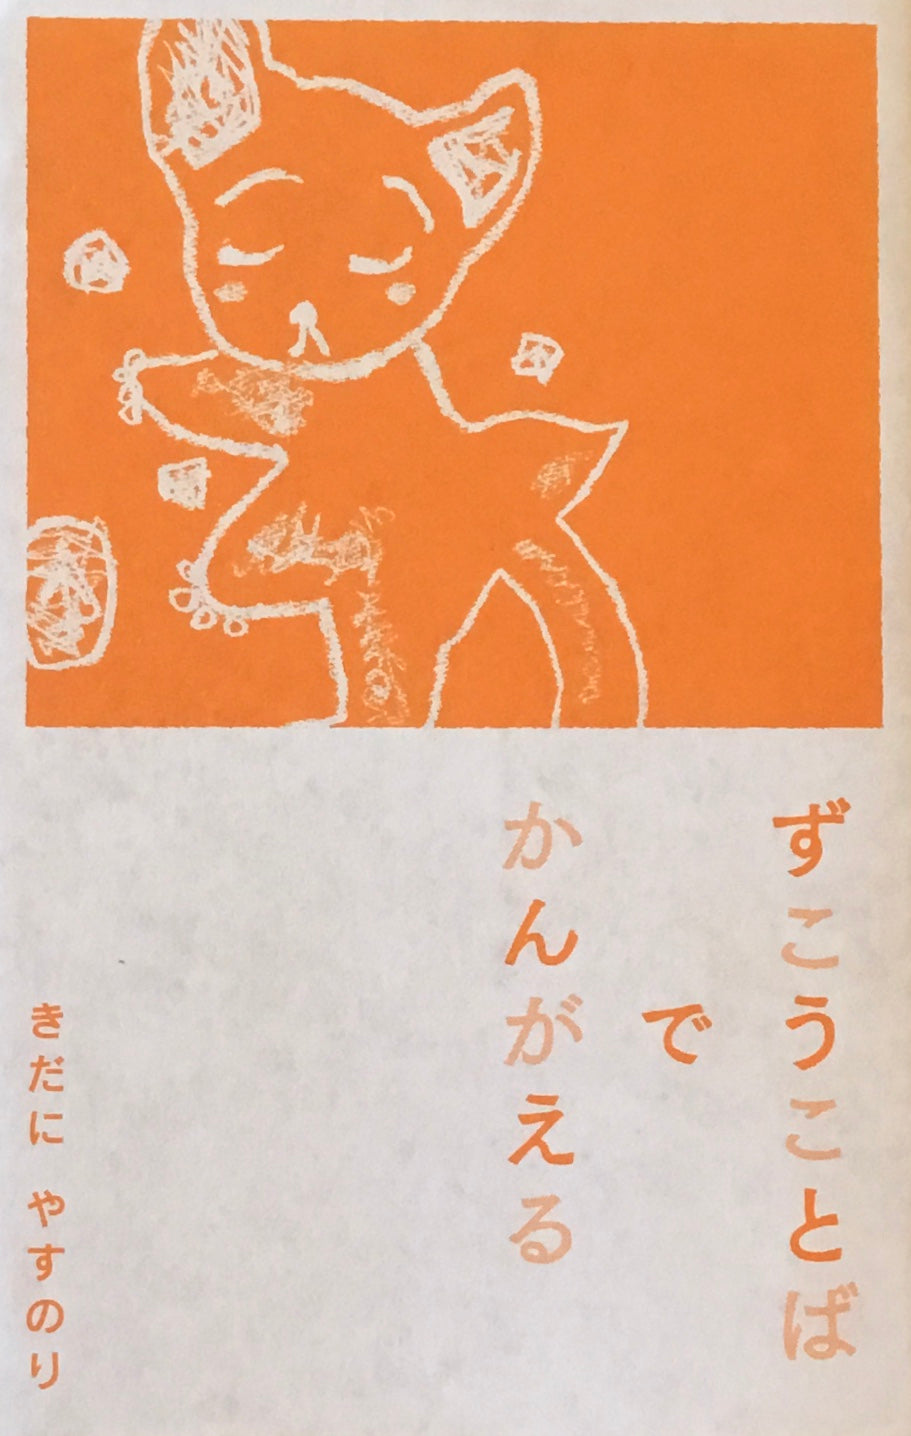 ずこうことば
で
かんがえる
きだに やすのり